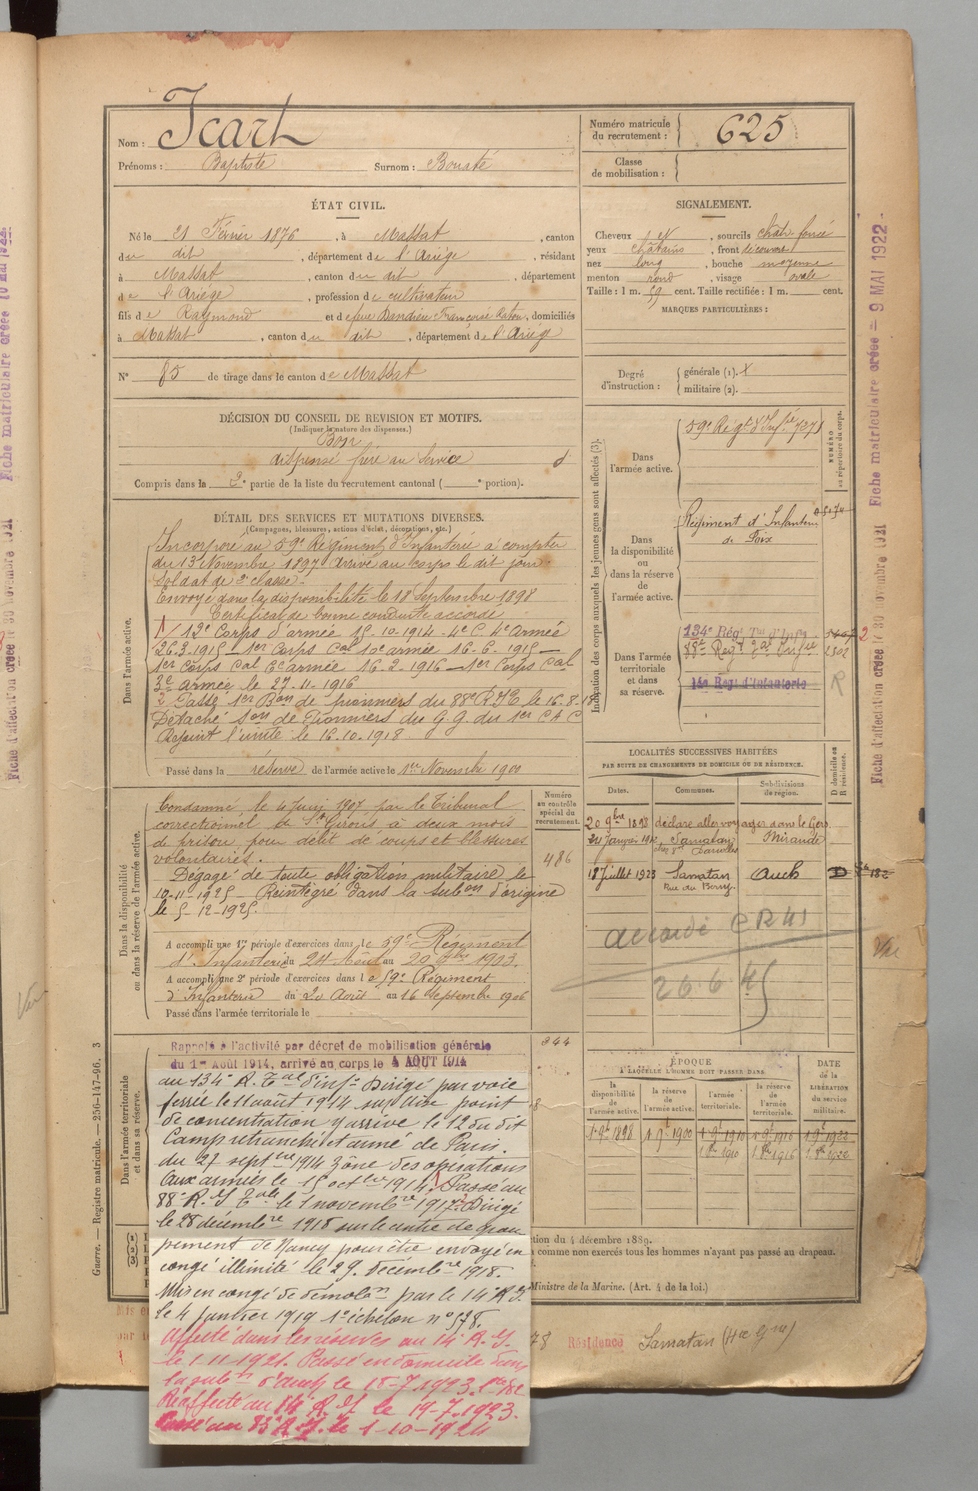 Nom : Icart
Prénoms : Baptiste Surnom : Bousté
Numéro matricule du recrutement : 625
Classe de mobilisation :
ÉTAT CIVIL.
Né le 21 Février 1876, à Massat, canton
du dit, département de l'Ariège, résidant
à Massat, canton du dit, département
de l'Ariège, profession de cultivateur
fils de Raymond et de feue Dandieu Françoise, domiciliés
à Massat, canton du dit, département de l'Arièg
N° 85 de tirage dans le canton de Massat
SIGNALEMENT.
Cheveux , sourcils chât. foncé
yeux châtains, front découvert
nez long, bouche moyenne
menton rond, visage ovale
Taille : 1 m. 59 cent. Taille rectifiée : 1 m. cent.
MARQUES PARTICULIÈRES :
Degré d'instruction : générale (1). X
militaire (2).
DÉCISION DU CONSEIL DE REVISION ET MOTIFS.
(Indiquer la nature des dispenses.)
Bon
dispensé frère au service
Compris dans la 2e partie de la liste du recrutement cantonal ( e portion).
DÉTAIL DES SERVICES ET MUTATIONS DIVERSES.
(Campagnes, blessures, actions d'éclat, décorations, etc.)
Dans l'armée active.
Incorporé au 59e Régiment d'Infanterie à compter
du 13 Novembre 1897 Arrivé au corps le dit jour
soldat de 2e classe.
Envoyé dans la disponibilité le 18 Septembre 1898
Certificat de bonne conduite accordé
1/ 12e Corps d'armée 15-10-1914 - 4e C. 4e Armée
26.3.1915 - 1er Corps Cal 10e armée 16-6-1915 -
1er Corps Cal 6e armée 16-2-1916 - 1er Corps Cal
3e armée le 27-11-1916
2 Passé 1er Bon de pionniers du 88e R.I.T. le 16-8-18
Détaché Son de Pionniers du G.G. du 1er C A C
Rejoint l'unité le 16.10.1918
Passé dans la réserve de l'armée active le 1er Novembre 1900
Dans la disponibilité ou dans la réserve de l'armée active.
Condamné le 4 Juin 1907 par le Tribunal
correctionnel de St Girons à deux mois
de prison pour délit de coups et blessures
volontaires.
Dégagé de toute obligation militaire le
10-11-1925 - Réintégré dans la subon d'origine
le 5-12-1925.
A accompli une 1re période d'exercices dans le 59e Régiment
d'Infanterie du 24 Août au 20 7bre 1903.
A accompli une 2e période d'exercices dans le 59e Régiment
d'Infanterie du 20 Août au 16 Septembre 1906
Passé dans l'armée territoriale le
Numéro au contrôle spécial du recrutement.
486
344
Dans l'armée territoriale et dans sa réserve.
Rappelé à l'activité par décret de mobilisation générale
du 1er Août 1914, arrivé au corps le 4 AOUT 1914
au 134e R. Tal d'Infie Dirigé par voie
ferrée le 11 août 1914 sur Dixe point
de concentration y arrivé le 12 du dit
Camp retranché et armé de Paris.
du 27 septbre 1914 Zône des opérations
aux armées le 15 octbre 1914. 1 Passé au
88e R. I. Tale le 1 novembre 1917. 2 Dirigé
le 28 décembre 1918 sur le centre de grou
pement de Nancy pour être envoyé en
congé illimité le 29. décembre 1918.
Mis en congé de démolon par le 14e R.I.
le 4 janvier 1919 1er échelon n° 578.
Affecté dans les réserves au 14e R. I.
le 1.11.1921. Passé en domicile dans
la subon d'Auch le 18-7.1923.
Réaffecté au 14e R. I. le 19-7.1923.
Passé au 83e R. I. le 1-10-1924
Indication des corps auxquels les jeunes gens sont affectés (3).
Dans l'armée active.
59e Régt d'Infrie 7278
NUMÉRO au répertoire du corps.
Dans la disponibilité ou dans la réserve de l'armée active.
Régiment d'Infanterie
de Foix
Dans l'armée territoriale et dans sa réserve.
134e Régt Tal d'Infie
88e Régt Tal Infie 2302
14e Regt d'Infanterie
R
LOCALITÉS SUCCESSIVES HABITÉES
PAR SUITE DE CHANGEMENTS DE DOMICILE OU DE RÉSIDENCE.
Dates. Communes. Subdivisions de région. D domicile ou R résidence.
20 9bre 1898 déclare aller voyager dans le Gers
24 Janvier 1912 Samatan Mirande
18 Juillet 1923 Samatan Auch D
Rue du Bourg.
accordé CR 41
26.6.45
ÉPOQUE
A LAQUELLE L'HOMME DOIT PASSER DANS
la disponibilité de l'armée active. la réserve de l'armée active. l'armée territoriale. la réserve de l'armée territoriale. DATE de la LIBÉRATION du service militaire.
1.9t 1898 1.9t 1900 1 9t 1910 1 9t 1916 1 9t 1922
1.8re 1910 1.8re 1916 1.8re 1922
ction du 4 décembre 1889.
comme non exercés tous les hommes n'ayant pas passé au drapeau.
Ministre de la Marine. (Art. 4 de la loi.)
78 Résidence Samatan (Hte Gne)
Guerre. — Registre matricule. — 250-147-96. 3
Fiche d'affectation créée le 30 novembre 1921 Fiche matriculaire créée - 9 MAI 1922
Fiche d'affectation créée le 30 novembre 1921 Fiche matriculaire créée 10 MAI 1922